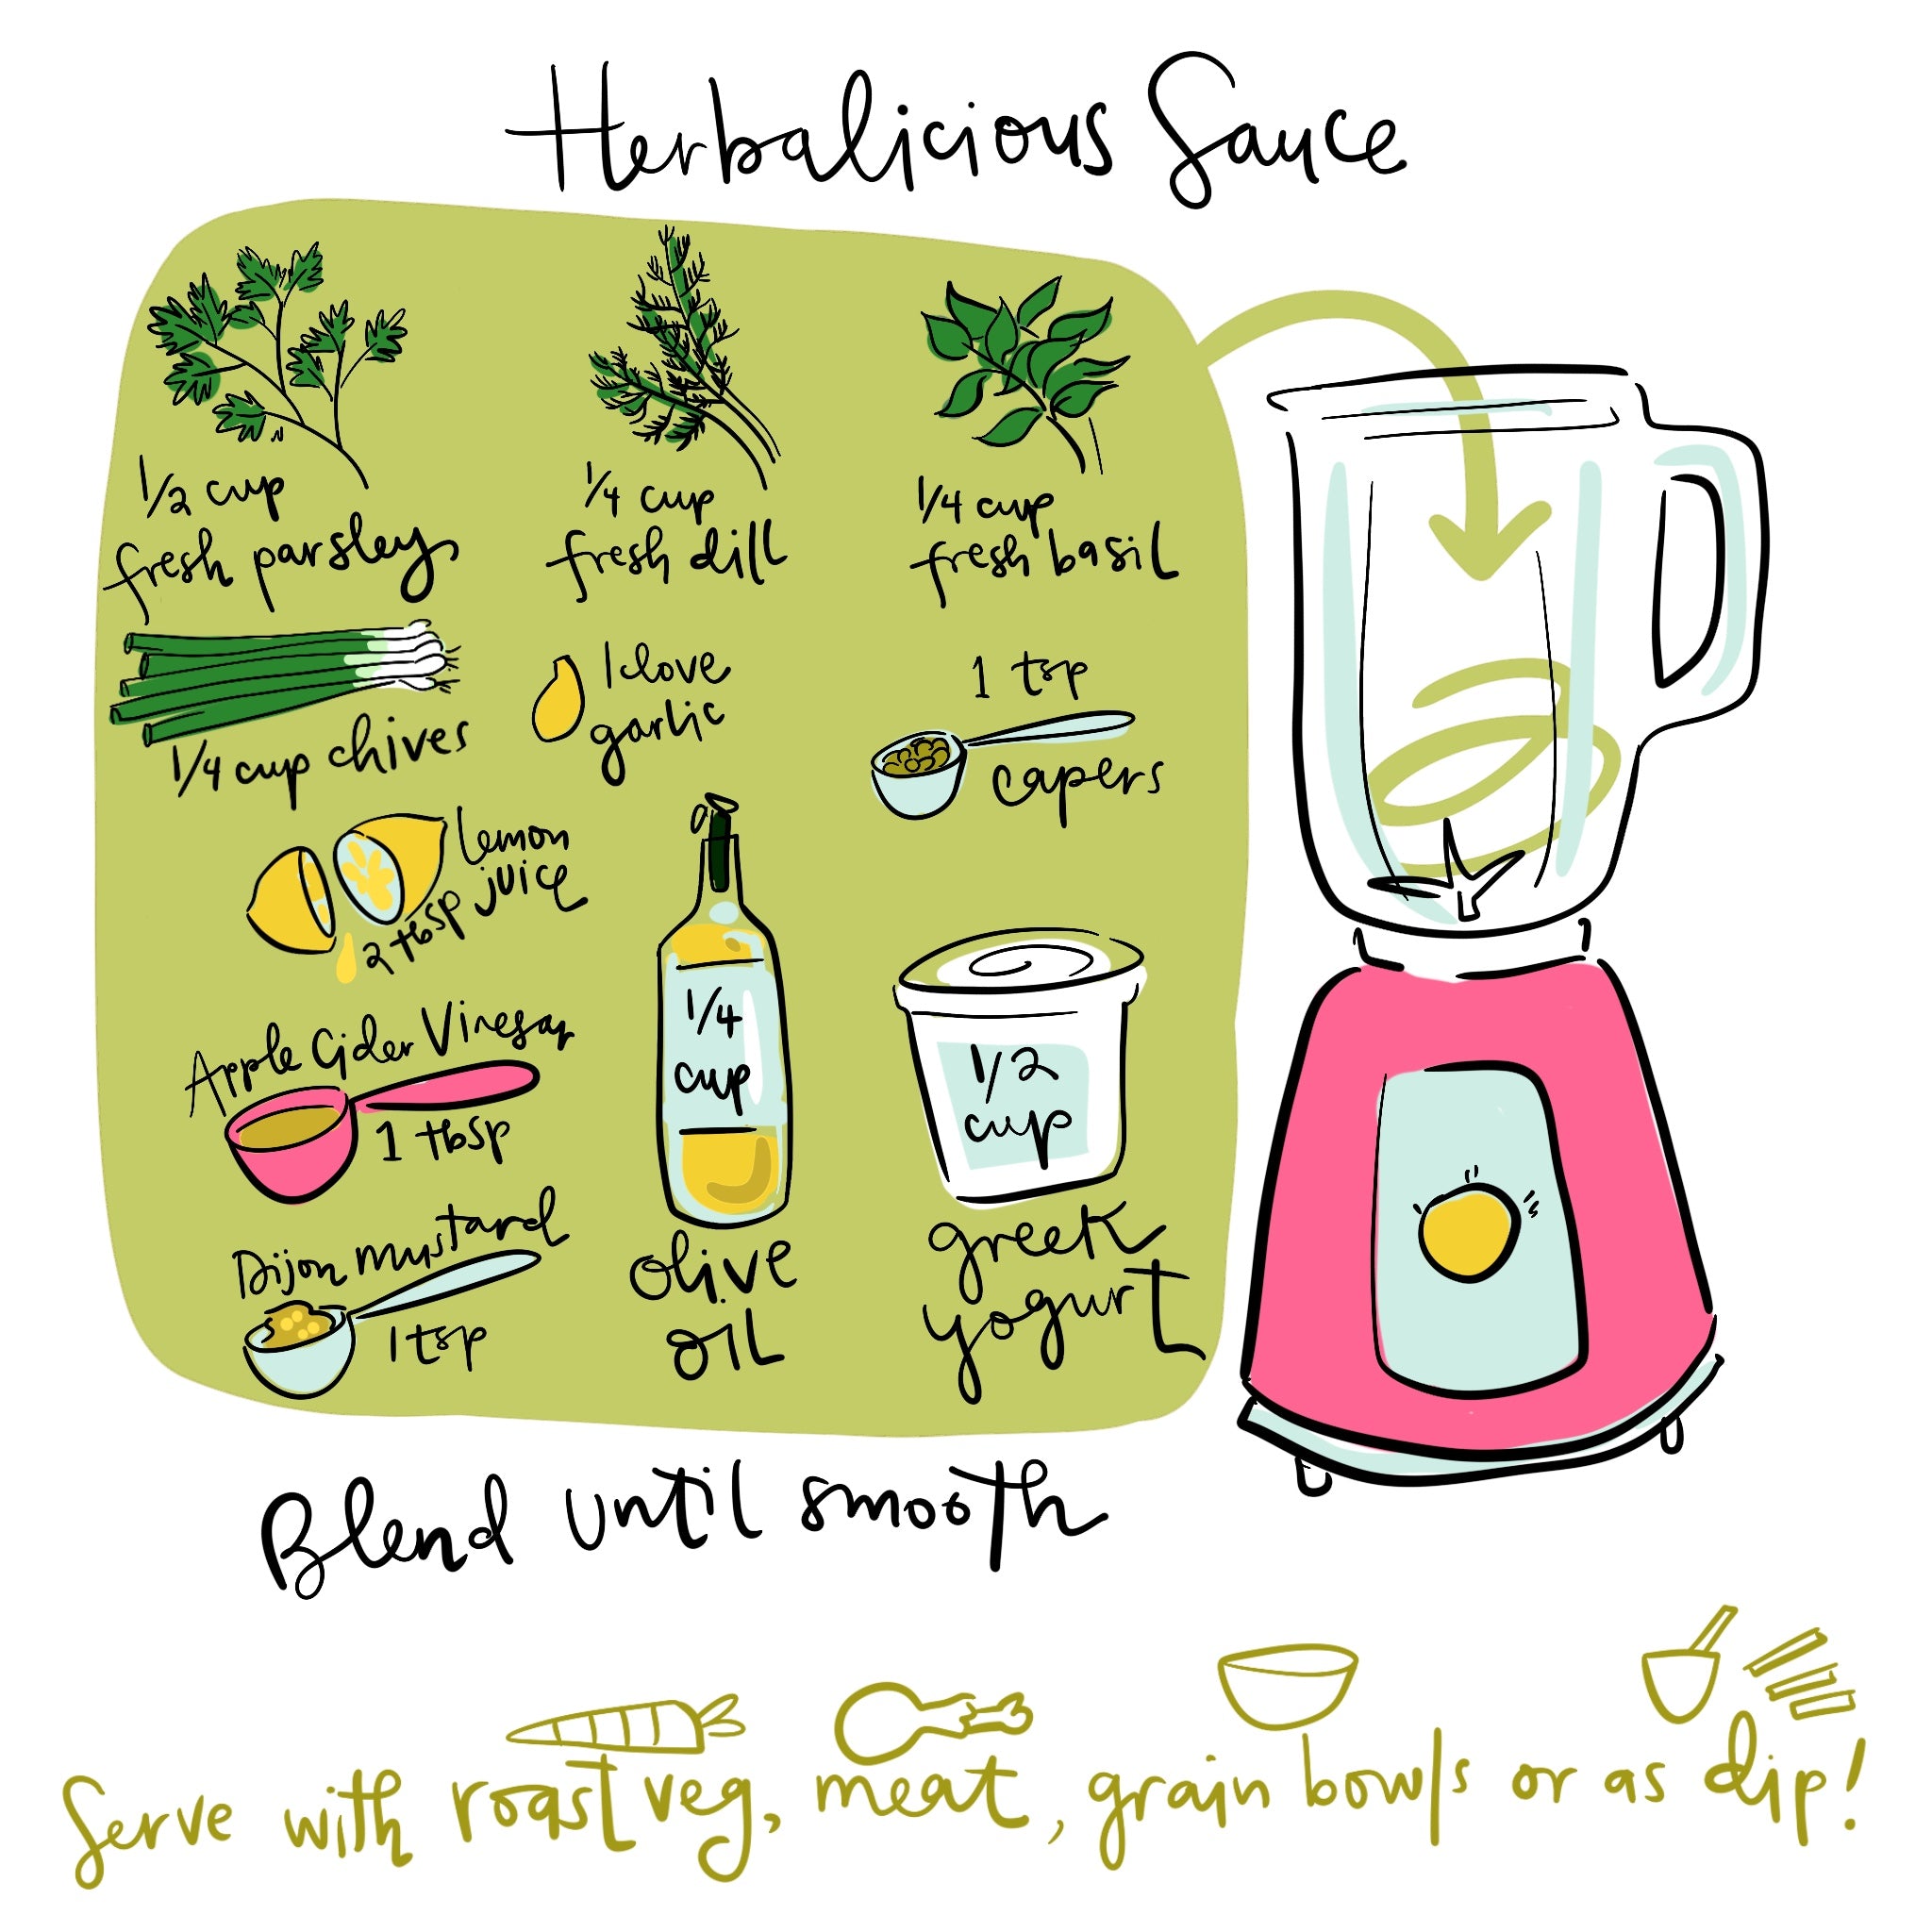 Herbalicious Sauce
1/2 cup
fresh parsley,
1/4 cup
fresh dill
1/4 cup
fresh basil
1/4 cup chives
1 clove
garlic
1 tsp
capers
lemon
juice
2 tbsp
Apple Cider Vinegar
1 tbsp
Dijon mustard
1 tsp
1/4
cup
olive
oil
1/2
cup
greek
yogurt
Blend until smooth
Serve with roast veg, meat, grain bowls or as dip!